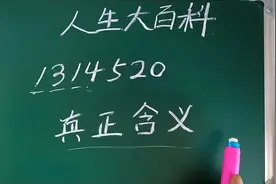 人生大百科
1314520
真正含义